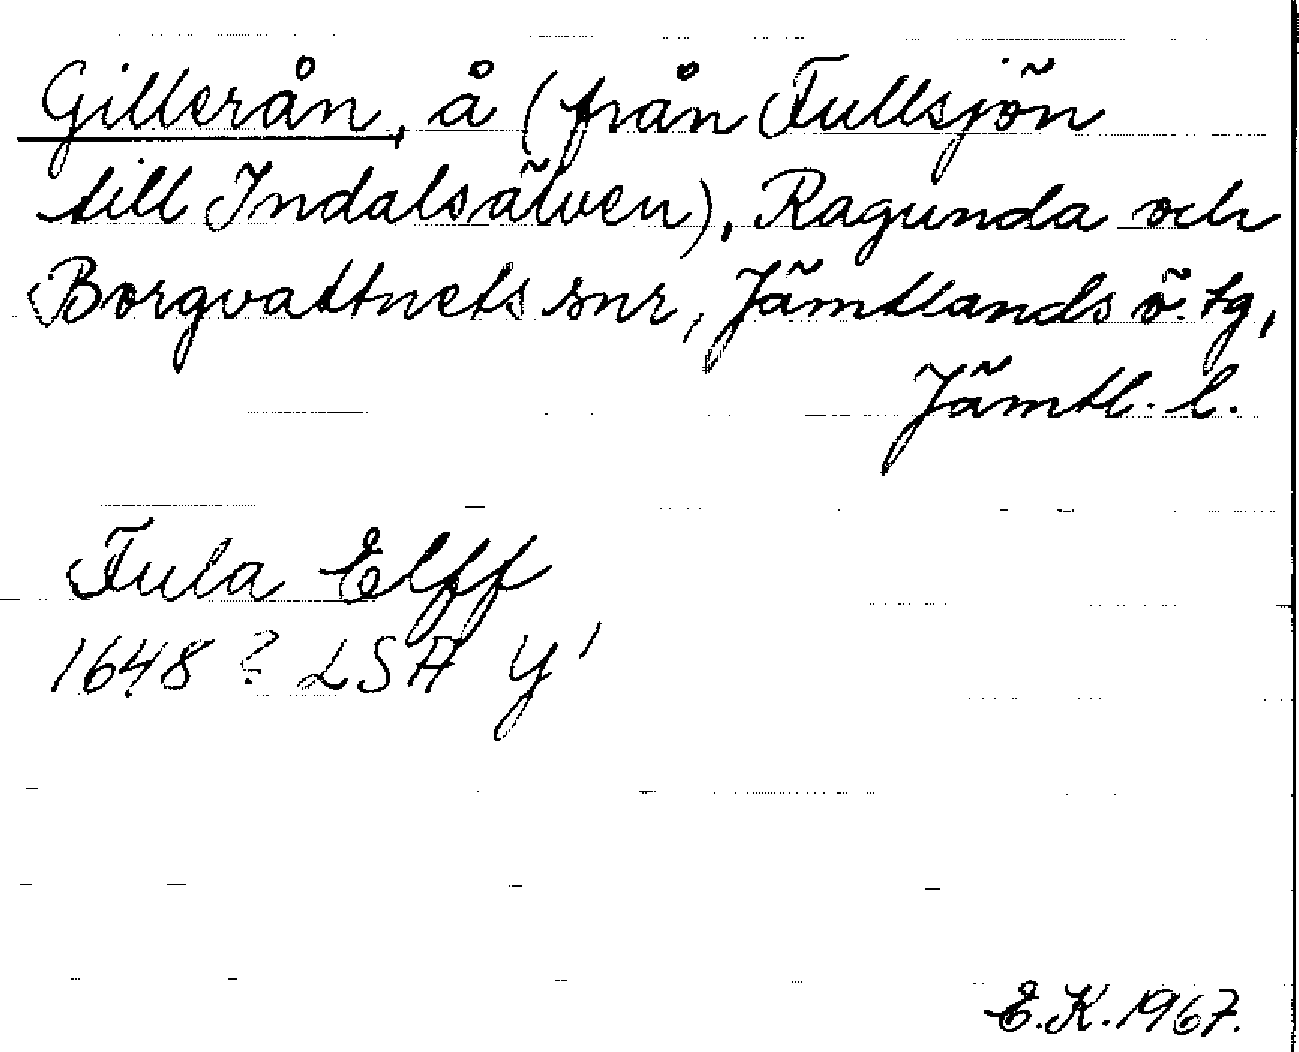 Gillerån, å (från Fullsjön
till Indalsälven), Ragunda och
Borgvattnets snr, Jämtlands ö. tg,
Jämtl. l.
Fula Elff
1648? LSA Y¹
E.K. 1967.